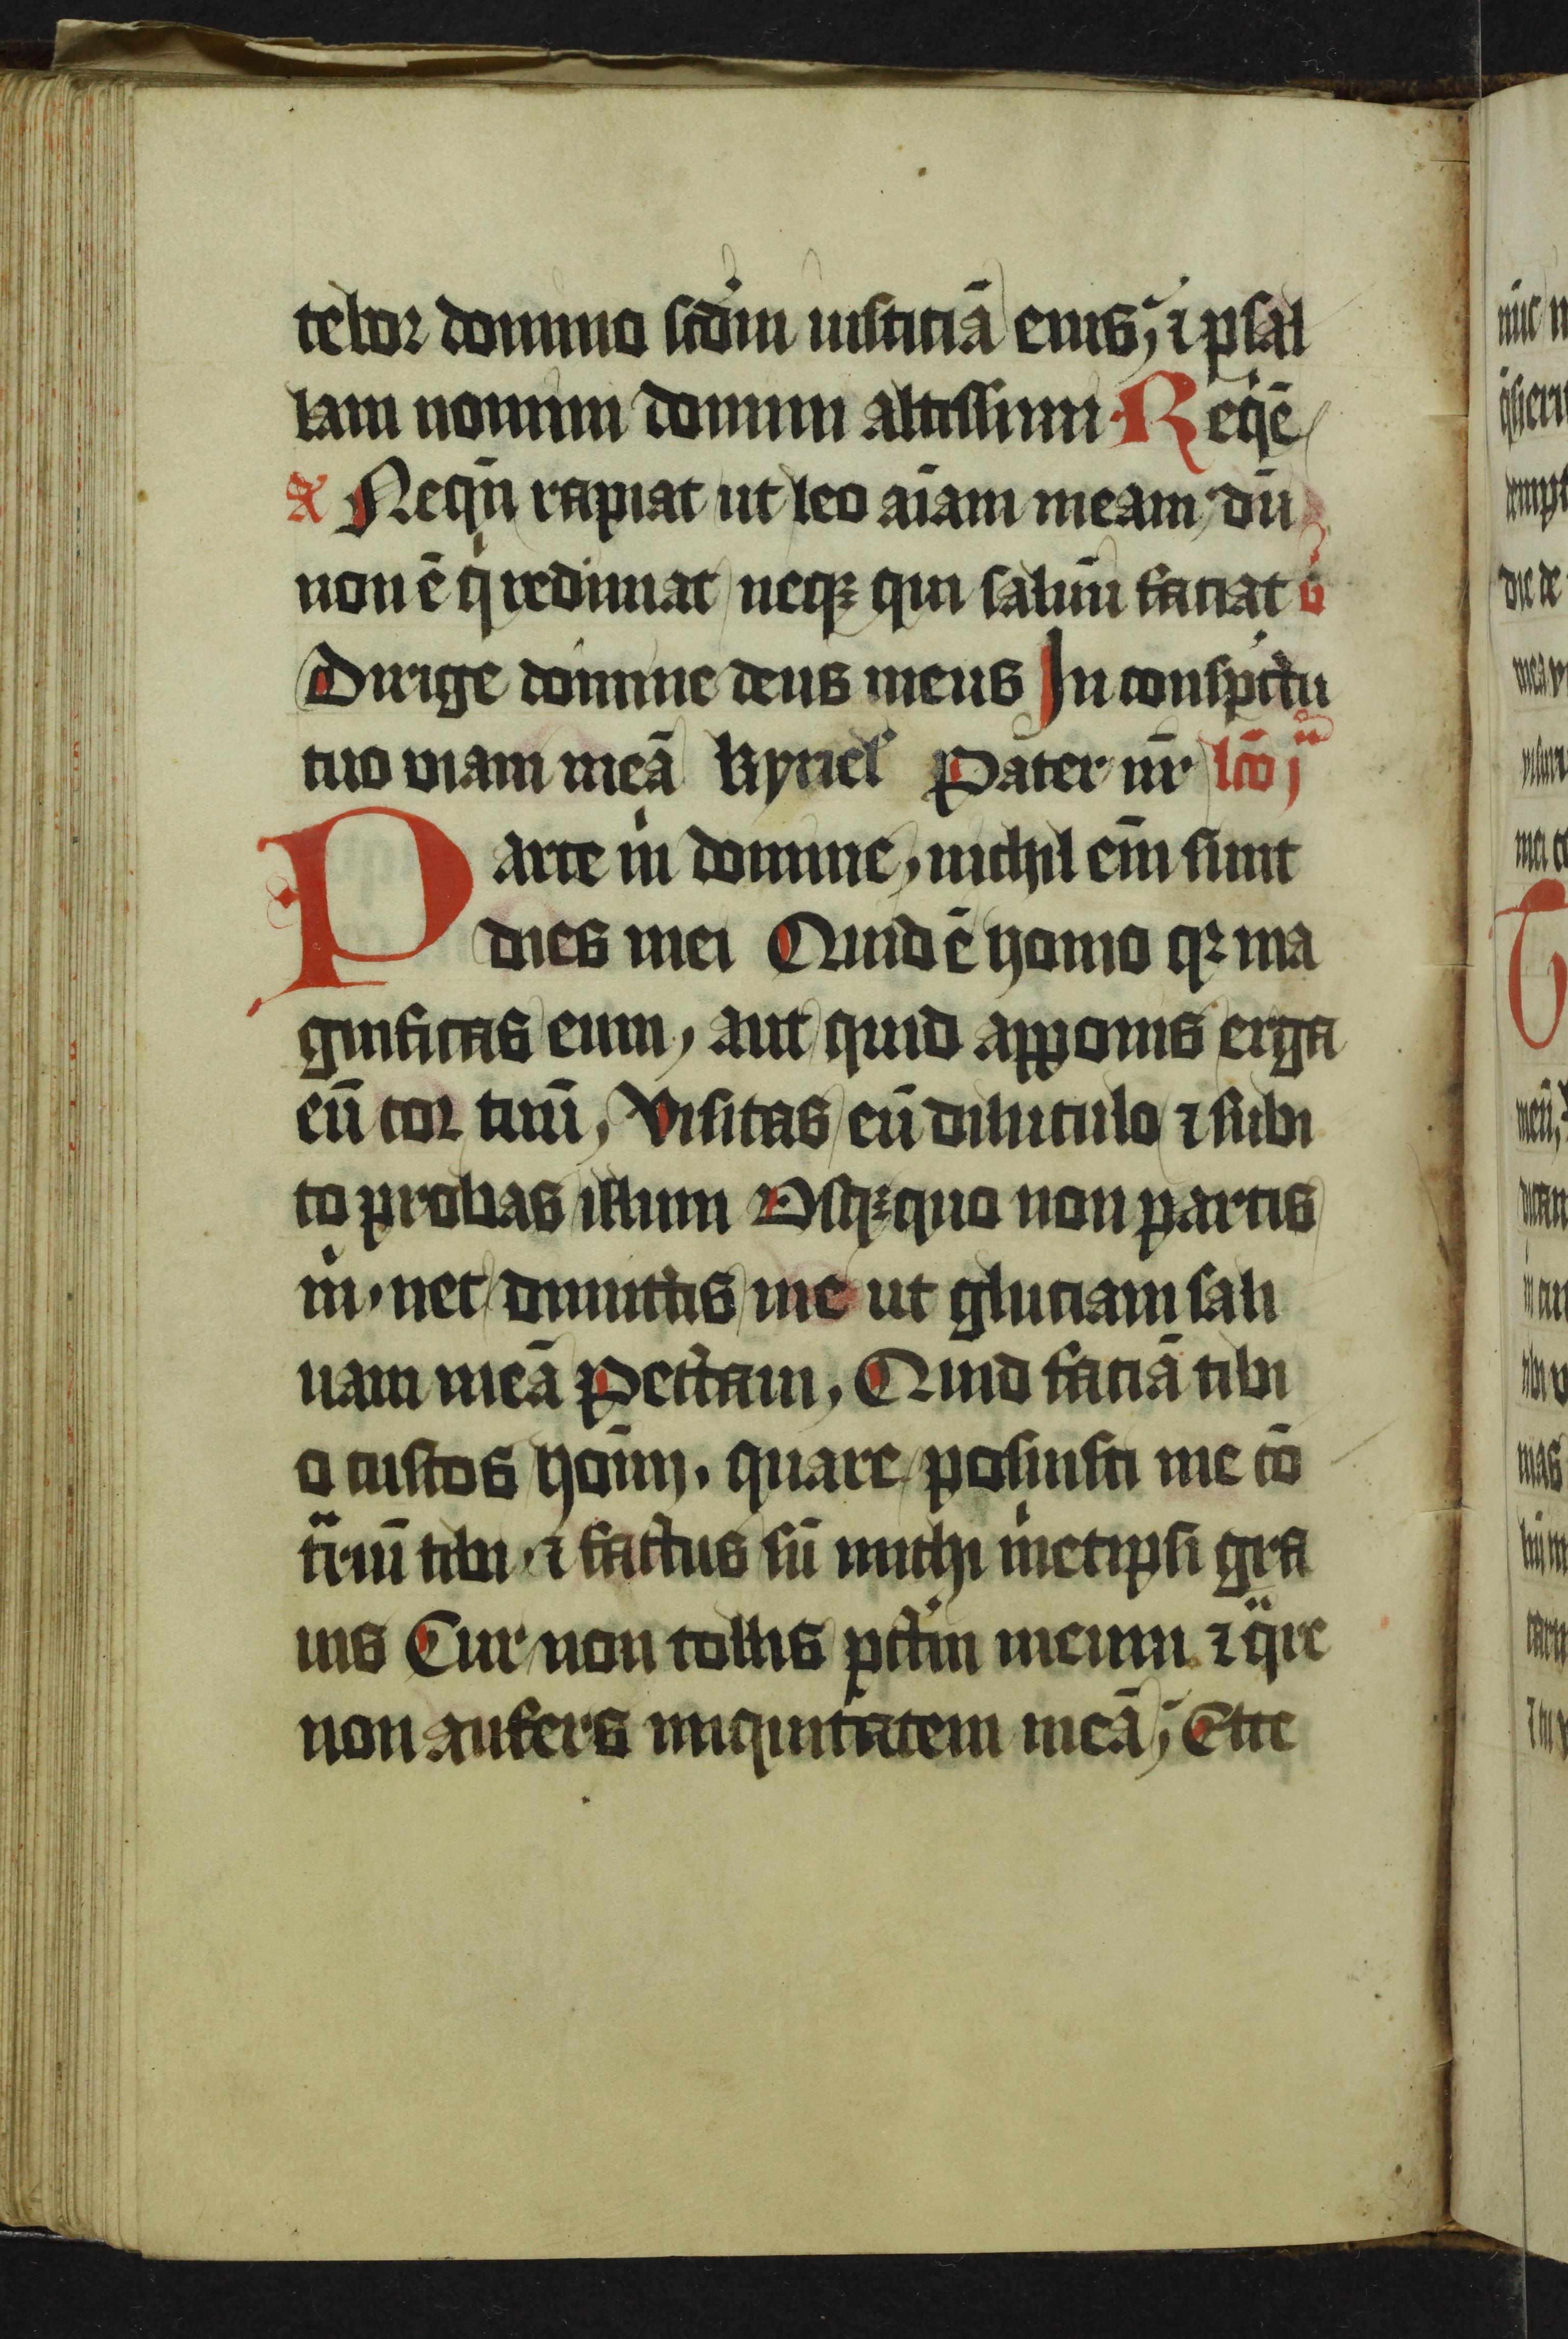 tebor domino scdm iusticiā eius, ⁊ psal
lam nomini domini altissimi Reqē
A Neqñ rapiat ut leo aīam meam, dū
non ē q̇ redimat neqꝫ qui saluū faciat v̇
Dirige domine deus meus In conspectu
tuo viam meā Kyriel Pater nr̄ lcō j
Parce ṁ domine, nichil em̄ sunt
dies mei Quid ē homo qꝫ ma
gnificas eum, aut quid apponis erga
eū cor tuū, Visitas eū diluculo ⁊ subi
to probas illum Vsqꝫquo non parcis
ṁ, nec dimittis me ut gluciam sali
uam meā Peccaui, Quid faciā tibi
o custos hoīm, quare posuisti me cō
trriū tibi, ⁊ factus sū michi metipsi gra
uis Cur non tollis pctm̄ meum ⁊ qͣre
non aufers iniquitatem meā, Ecce